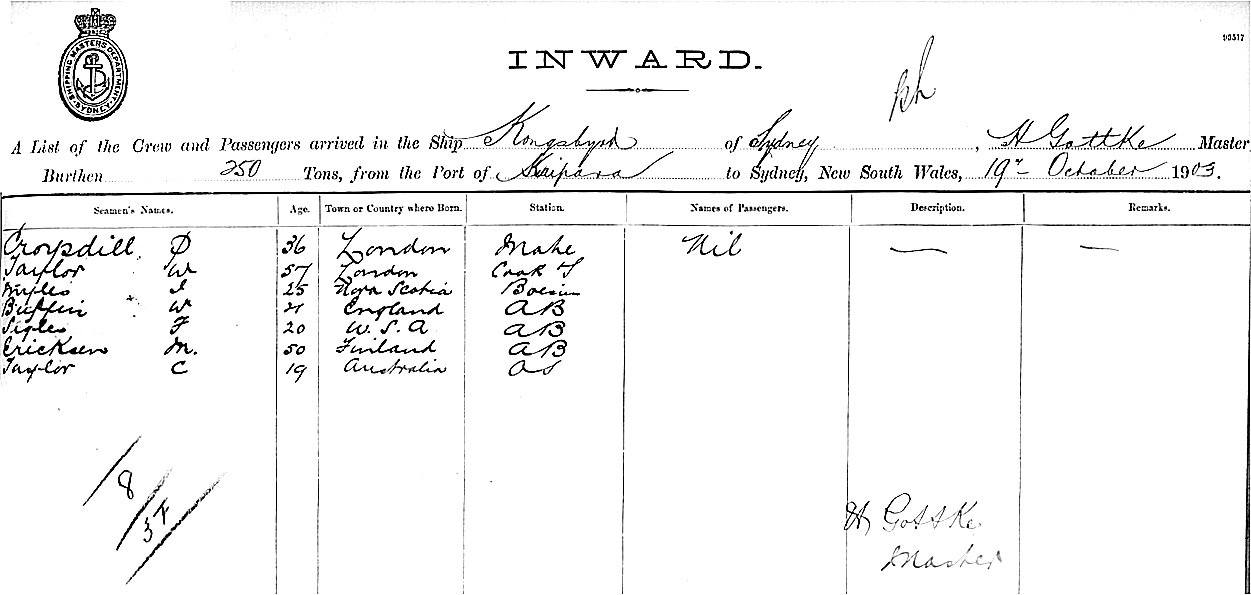 SHIPPING MASTERS DEPARTMENT SYDNEY
93517
INWARD.
A List of the Crew and Passengers arrived in the Ship of Sydney, H Gottke Master
Burthen 250 Tons, from the Port of Kaipara to Sydney, New South Wales, 19th October 1903.
Seamen's Names. Age. Town or Country where Born. Station. Names of Passengers. Description. Remarks.
D 36 London Mate Nil — —
Taylor W 57 London Cook
25 Nova Scotia Bosun
Buffin W 21 England AB
F 20 U.S.A AB
Ericksen M. 50 Finland AB
Taylor C 19 Australia OS
8
3F
H Gottke
Master